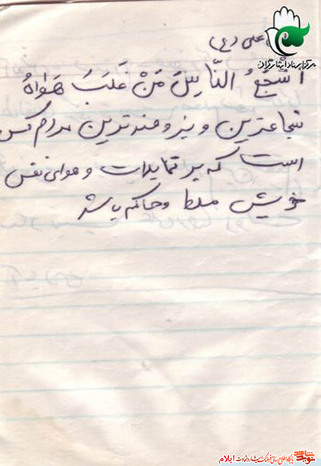 علی (ع)
اشجَعُ النّاسِ مَنْ غَلَبَ هَواهُ
شجاعترین و نیرومندترین مردم کسی
است که بر تمایلات و هوای نفس
خویش مسلط و حاکم باشد
ایلام